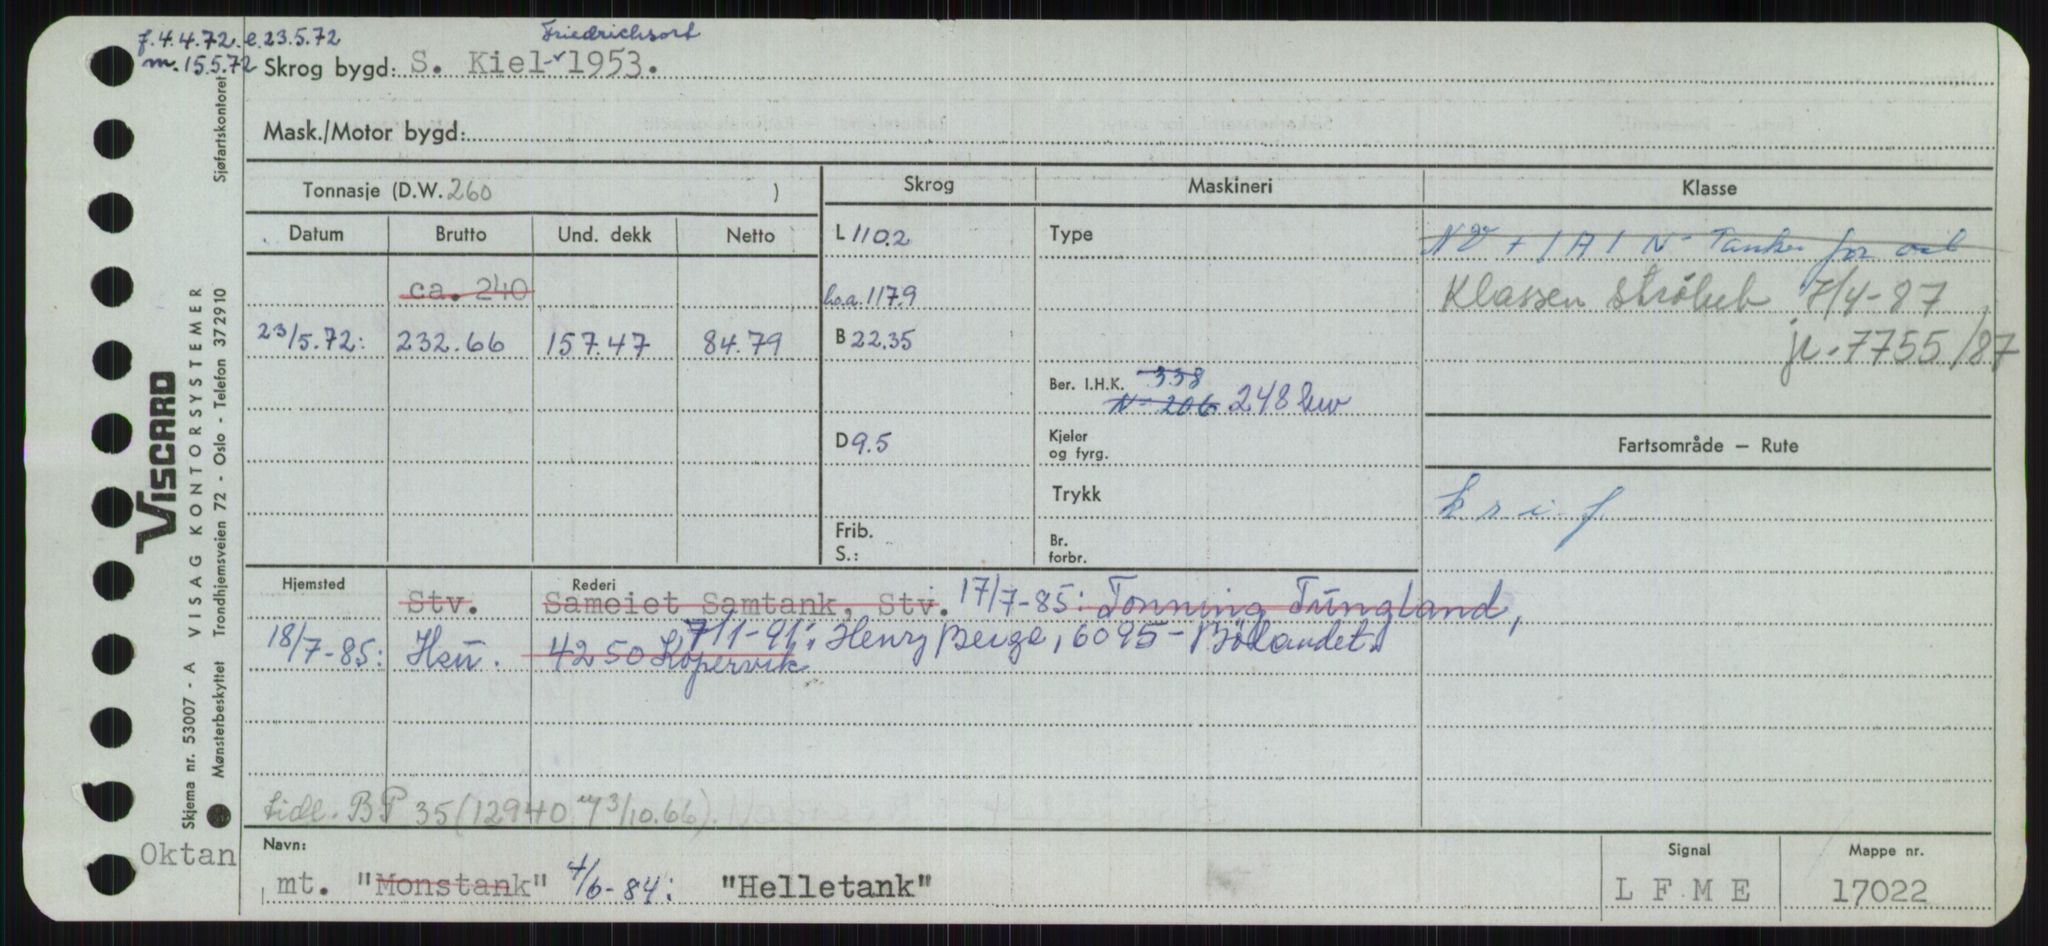 f. 4.4.72. e. 23.5.72
m. 15.5.72
Friedrichsort
Skrog bygd: S. Kiel 1953.
Mask./Motor bygd:
Tonnasje (D.W. 260 )
Skrog Maskineri Klasse
Datum Brutto Und. dekk Netto
L 110.2
Type
NV + 1A1 N- Tanker for oil
ca. 240
l.o.a. 117.9
Klassen strøket 7/4-87
23/5.72: 232.66 157.47 84.79
B 22.35
jr. 7755/87
Ber. I.H.K. 338
N- 206 248 kw
D 9.5
Kjeler
og fyrg.
Fartsområde — Rute
Trykk
k r i f
Frib.
S.:
Br.
forbr.
Hjemsted Rederi
Stv. Sameiet Samtank, Stv. 17/7-85: Tonning Tungland,
18/7-85: Hsu. 4250 Kopervik
7/1-91: Henry Berge, 6095 - Bölandet.
tidl. BP 35 (12940 m/3/10.66).
Oktan
Navn:
mt. "Monstank" 4/6-84: "Helletank"
Signal
L F M E
Mappe nr.
17022
Sjøfartskontoret
VISCARD
VISAG KONTORSYSTEMER
Trondhjemsveien 72 - Oslo - Telefon 372910
Skjema nr. 53007 - A
Mønsterbeskyttet